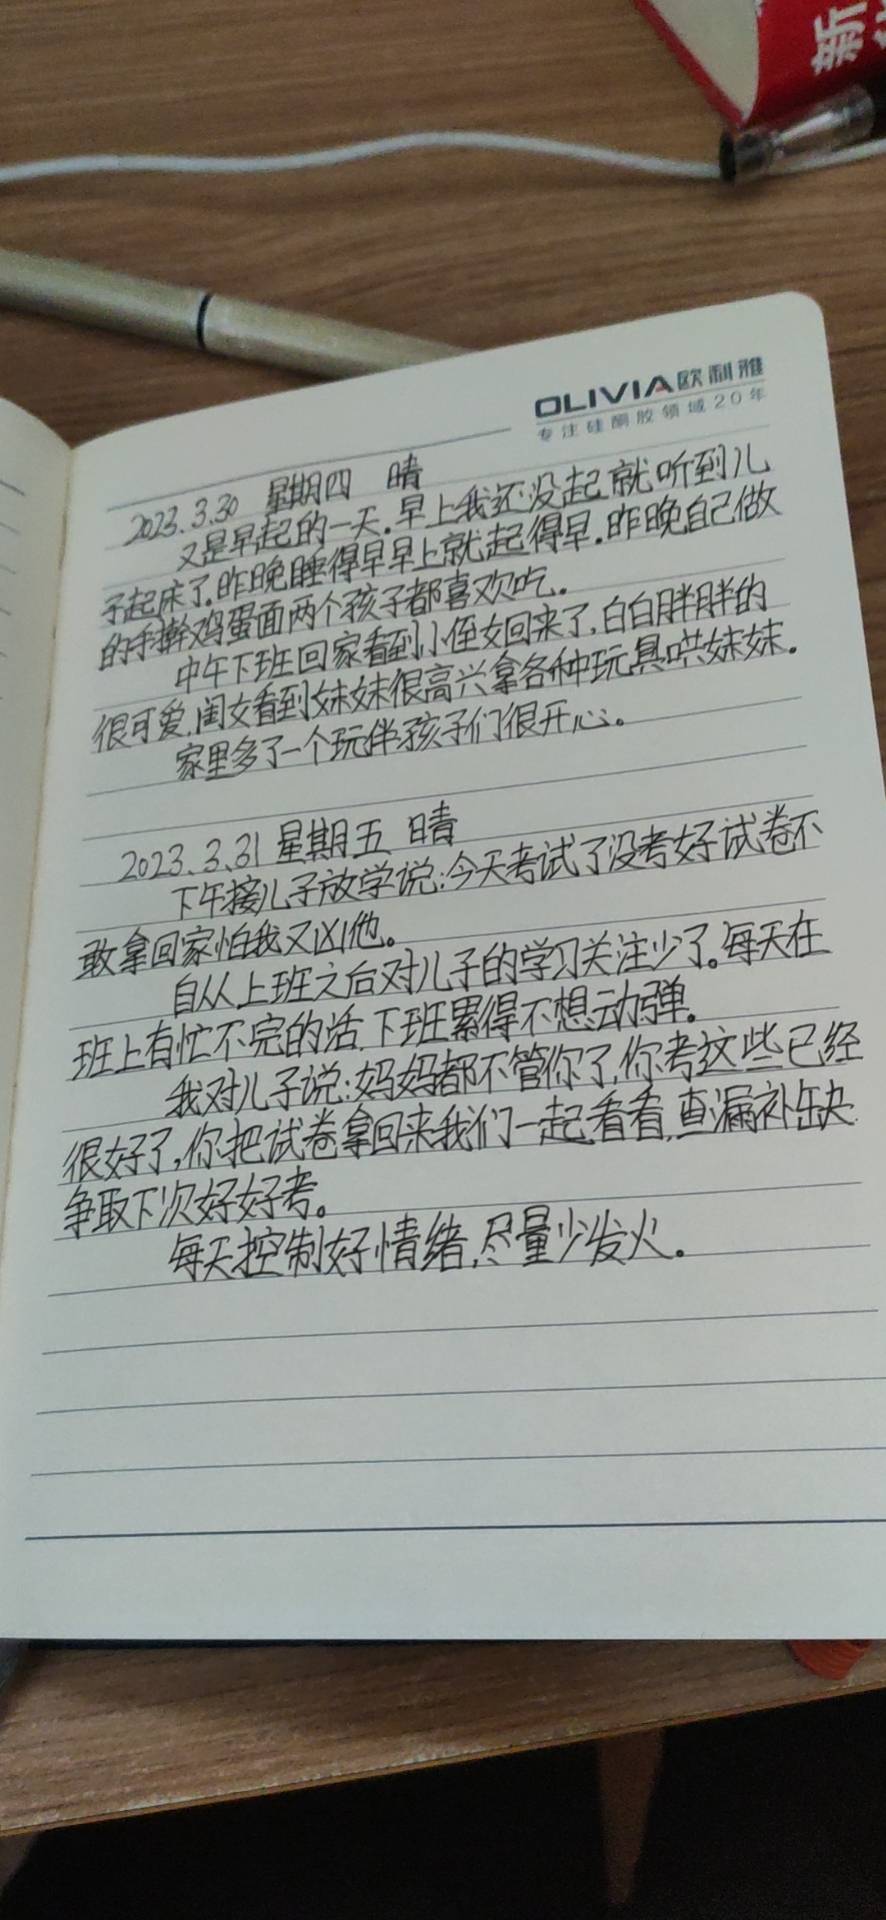 新
OLIVIA欧利雅
专注硅酮胶领域20年
2023.3.30 星期四 晴
又是早起的一天.早上我还没起就听到儿
子起床了.昨晚睡得早早上就起得早.昨晚自己做
的手擀鸡蛋面两个孩子都喜欢吃.
中午下班回家看到小侄女回来了,白白胖胖的
很可爱.闺女看到妹妹很高兴拿各种玩具哄妹妹.
家里多了一个玩伴孩子们很开心。
2023.3.31 星期五 晴
下午接儿子放学说:今天考试了没考好试卷不
敢拿回家怕我又凶他。
自从上班之后对儿子的学习关注少了。每天在
班上有忙不完的活.下班累得不想动弹。
我对儿子说:妈妈都不管你了,你考这些已经
很好了,你把试卷拿回来我们一起看看,查漏补缺
争取下次好好考。
每天控制好情绪,尽量少发火。